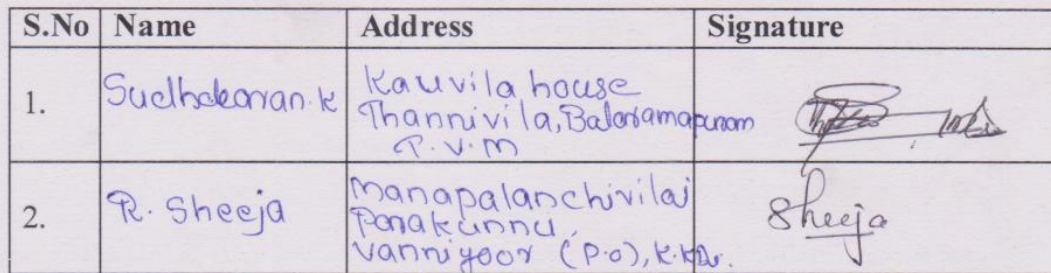 S.No Name Address Signature
1. Sudhakaran.K Kauvila house
Thannivila, Balaramapuram
T.V.M
2. R. Sheeja Manapalanchivilai
Panakunnu,
Vanniyoor (P.O), K.K Dis. Sheeja